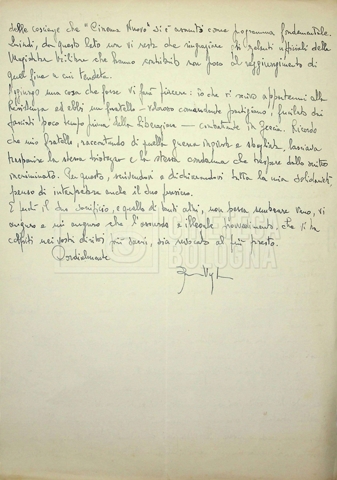 delle coscienze che "Cinema Nuovo" si è assunto come programma fondamentale.
Quindi, da questo lato non vi resta che ringraziare gli zelanti ufficiali della
Magistratura Militare che hanno contribuito non poco al raggiungimento di
quel fine a cui tendete.
Aggiungo una cosa che forse vi farà piacere: io che vi scrivo appartenni alla
Resistenza ed ebbi un fratello - valoroso comandante partigiano, fucilato dai
fascisti poco tempo prima della liberazione - combattente in Grecia. Ricordo
che mio fratello, raccontando di quella guerra ingiusta e sbagliata, lasciava
trasparire la stessa e la stessa condanna che traspare dallo scritto
incriminato. Per questo, scrivendovi e dichiarandovi tutta la mia solidarietà,
penso di interpretare anche il suo pensiero.
E perché il suo sacrificio, e quello di tanti altri, non possa sembrare vano, vi
auguro e mi auguro che l'assurdo e illegale provvedimento che vi ha
colpiti nei vostri diritti più sacri, sia revocato al più presto.
Cordialmente
BOLOGNA